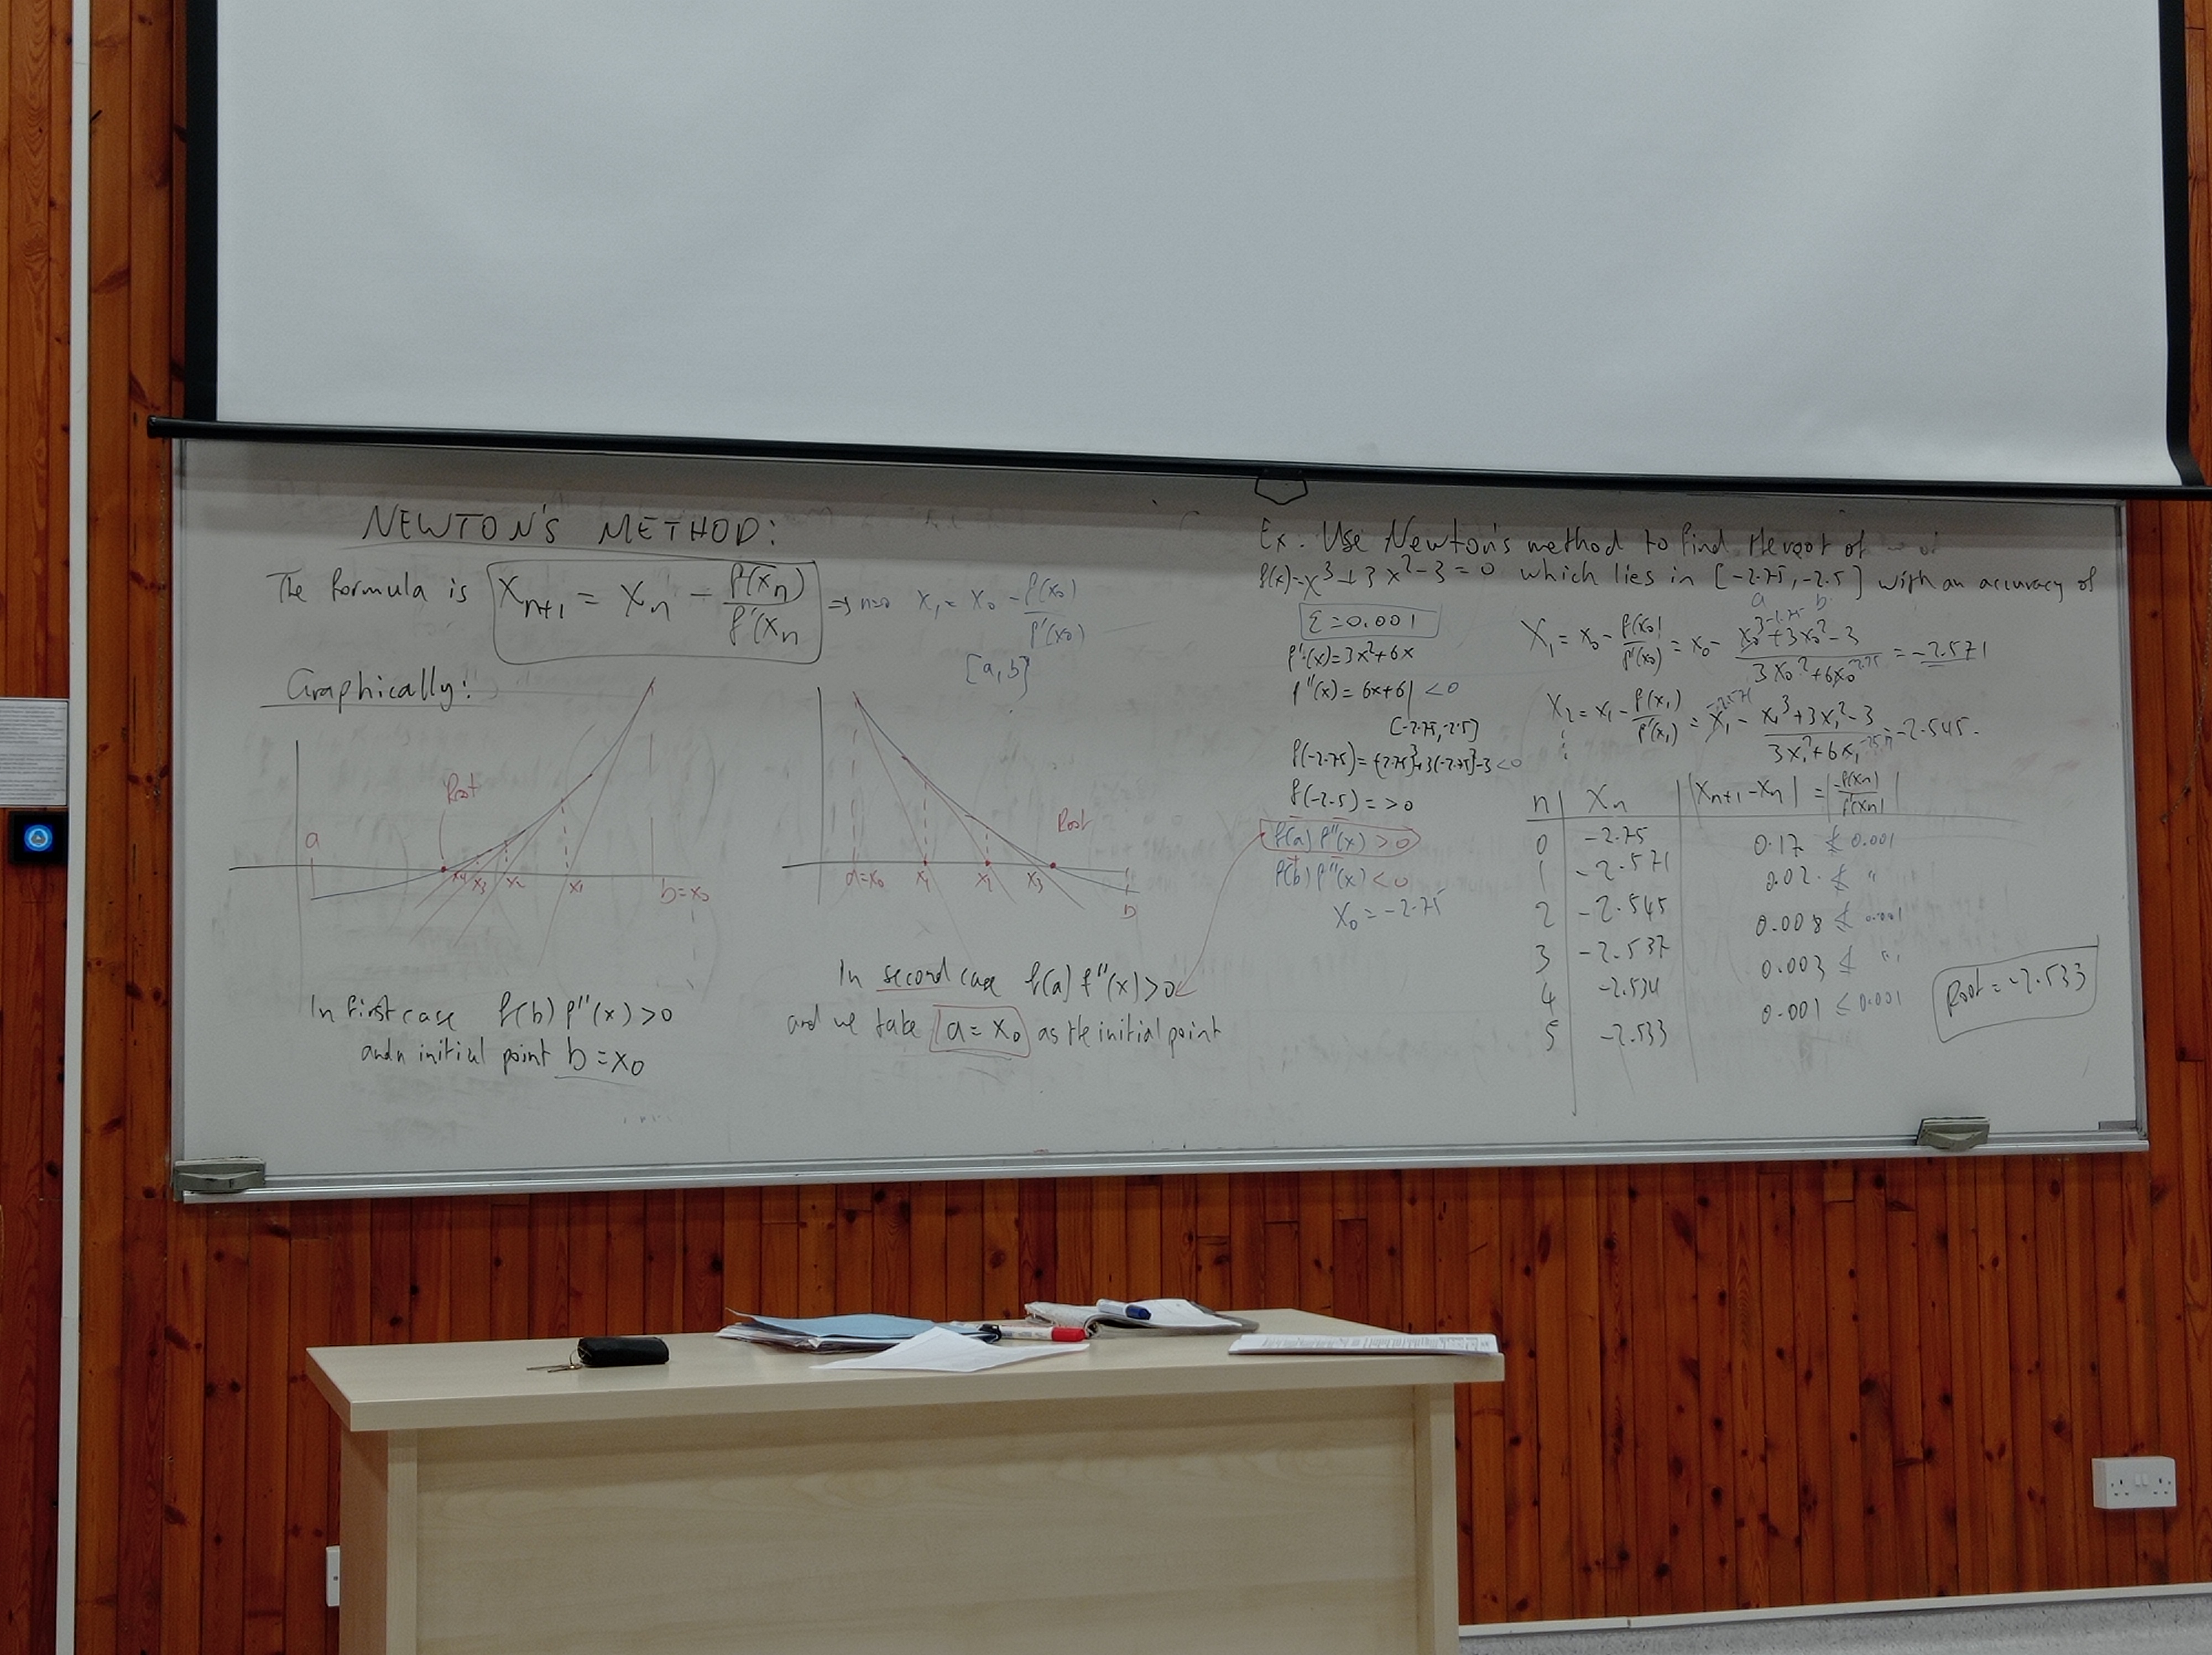 NEWTON'S METHOD:
The formula is Xn+1 = Xn - f(xn)/f'(xn => n=0 X1 = X0 - f(x0)/f'(x0)
[a,b]
Graphically:
Root
a
x4 x3 x2 x1 b=x0
Root
a=x0 x1 x2 x3 b
In first case f(b) f''(x) >0
and initial point b = x0
In second case f(a) f''(x)>0
and we take a = x0 as the initial point
Ex. Use Newton's method to find the root of
f(x)=x³+3x²-3=0 which lies in [-2.75,-2.5] with an accuracy of
a b
ε=0.001
f'(x)=3x²+6x
f''(x)=6x+6 <0
[-2.75,-2.5]
f(-2.75)=(-2.75)³+3(-2.75)²-3<0
f(-2.5)= >0
f(a) f''(x) >0
f(b) f''(x) <0
x0=-2.75
X1 = x0 - f(x0)/f'(x0) = x0 - x0³+3x0²-3/3x0²+6x0 = -2.571
X2 = x1 - f(x1)/f'(x1) = x1 - x1³+3x1²-3/3x1²+6x1 = -2.545.
n Xn |Xn+1-Xn| = |-f(xn)/f'(xn)|
0 -2.75 0.17 ≰ 0.001
1 -2.571 0.02 ≰ "
2 -2.545 0.008 ≰ 0.001
3 -2.537 0.003 ≰ "
4 -2.534 0.001 ≤ 0.001
5 -2.533
Root = -2.533